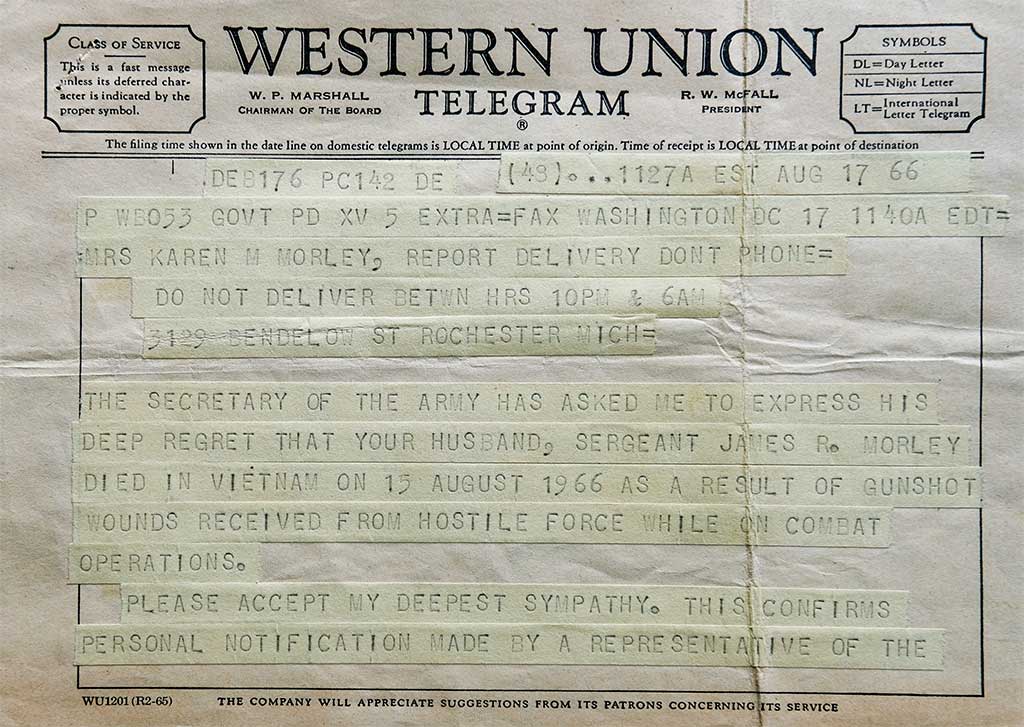 CLASS OF SERVICE
This is a fast message
unless its deferred char-
acter is indicated by the
proper symbol.
WESTERN UNION
TELEGRAM
®
W. P. MARSHALL
CHAIRMAN OF THE BOARD
R. W. McFALL
PRESIDENT
SYMBOLS
DL=Day Letter
NL=Night Letter
LT=International
Letter Telegram
The filing time shown in the date line on domestic telegrams is LOCAL TIME at point of origin. Time of receipt is LOCAL TIME at point of destination
DEB176 PC142 DE (48)...1127A EST AUG 17 66
P WB053 GOVT PD XV 5 EXTRA=FAX WASHINGTON DC 17 1140A EDT=
MRS KAREN M MORLEY, REPORT DELIVERY DONT PHONE=
DO NOT DELIVER BETWN HRS 10PM & 6AM
3129 BENDELOW ST ROCHESTER MICH=
THE SECRETARY OF THE ARMY HAS ASKED ME TO EXPRESS HIS
DEEP REGRET THAT YOUR HUSBAND, SERGEANT JAMES R. MORLEY
DIED IN VIETNAM ON 15 AUGUST 1966 AS A RESULT OF GUNSHOT
WOUNDS RECEIVED FROM HOSTILE FORCE WHILE ON COMBAT
OPERATIONS.
PLEASE ACCEPT MY DEEPEST SYMPATHY. THIS CONFIRMS
PERSONAL NOTIFICATION MADE BY A REPRESENTATIVE OF THE
WU1201 (R2-65) THE COMPANY WILL APPRECIATE SUGGESTIONS FROM ITS PATRONS CONCERNING ITS SERVICE